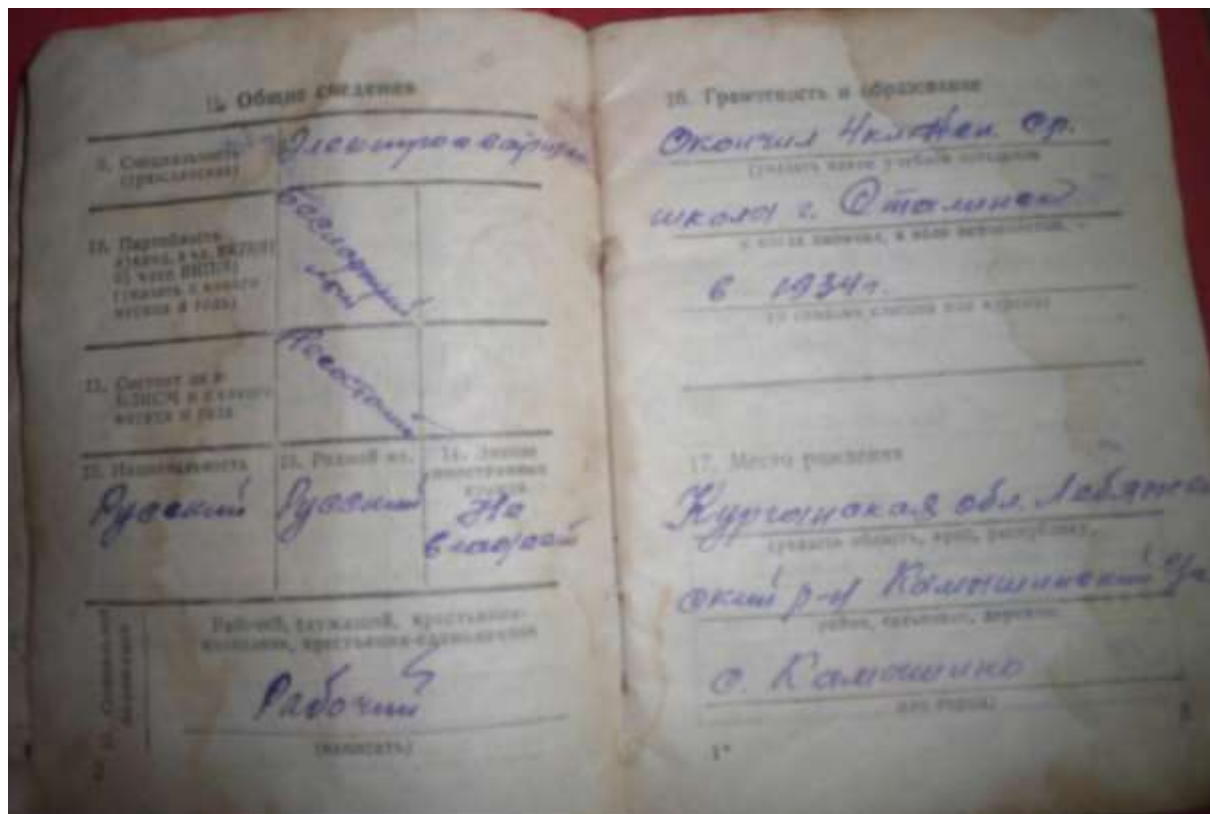 II. Общие сведения
9. Специальность
(гражданская)
Электросварщик
10. Партийность
Беспартий
ный
(указать с какого
месяца и года)
11. Состоит ли в
ВЛКСМ и с какого
месяца и года
Несостоит
12. Национальность
Русский
13. Родной яз.
Русский
14. Знание
иностранных
языков
Не
владеет
15. Социальное
положение
Рабочий, служащий, крестьянин-
колхозник, крестьянин-единоличник
Рабочий
(написать)
2
16. Грамотность и образование
Окончил 4 кл. ср.
(указать какое учебное заведение
школы г. Сталинск
и когда окончил, а если не окончил, -
в 1934 г.
то сколько классов или курсов)
17. Место рождения
Курганская обл. Лебяжев
(указать область, край, республику,
ский р-н Камышинский с/с
район, сельсовет, деревню,
с. Камышино
или город)
1*
3